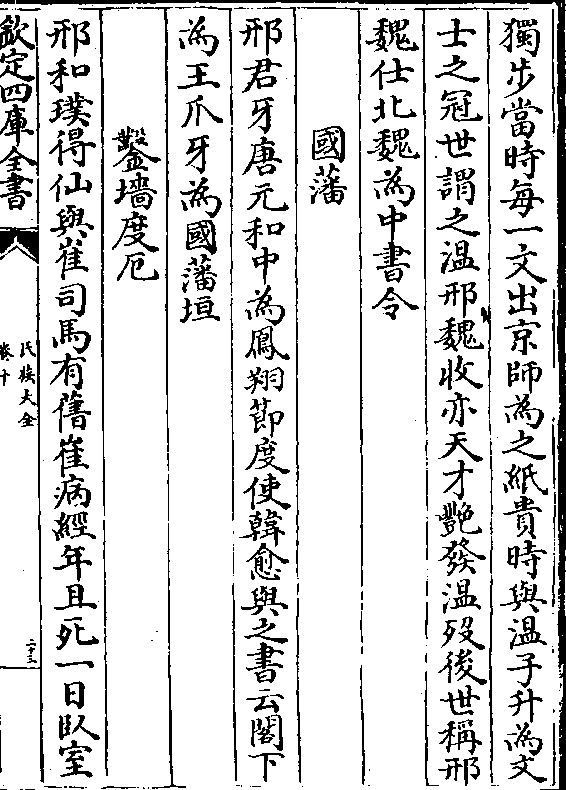 獨步當時每一文出京師為之紙貴時與溫子升為文
士之冠世謂之溫邢魏收亦天才艷發溫歿後世稱邢
魏仕北魏為中書令
國藩
邢君牙唐元和中為鳳翔節度使韓愈與之書云閣下
為王爪牙為國藩垣
鑿墻度厄
邢和璞得仙與崔司馬有舊崔病經年且死一日臥室
欽定四庫全書
氏族大全
卷十
二十三